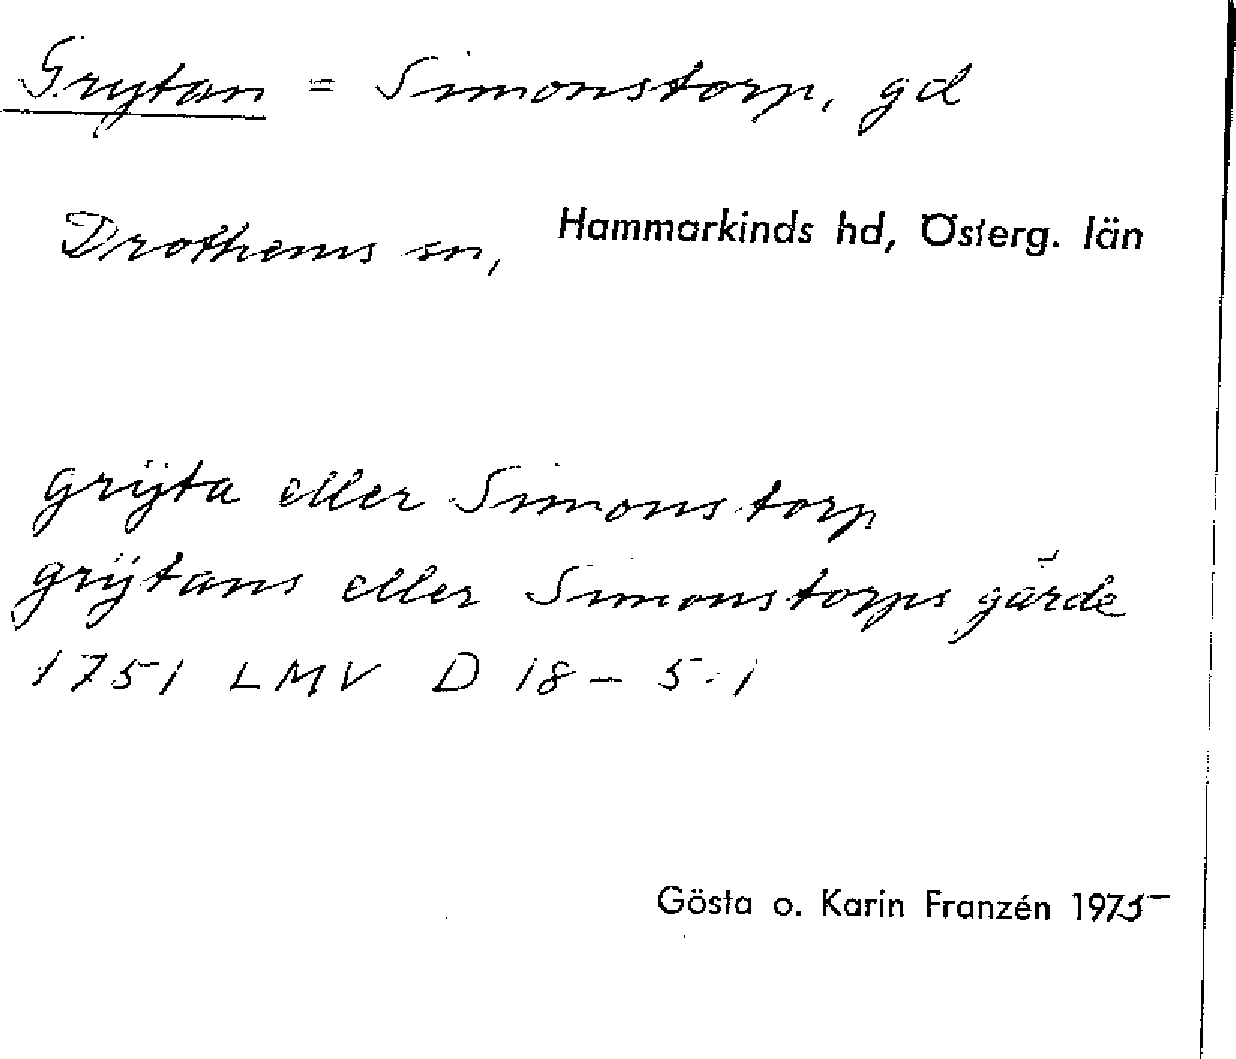 Grytan = Simonstorp, gd
Drothems sn, Hammarkinds hd, Österg. län
grÿta eller Simonstorp
grÿtans eller Simonstorps gärde
1751 LMV D 18 - 5:1
Gösta o. Karin Franzén 1975